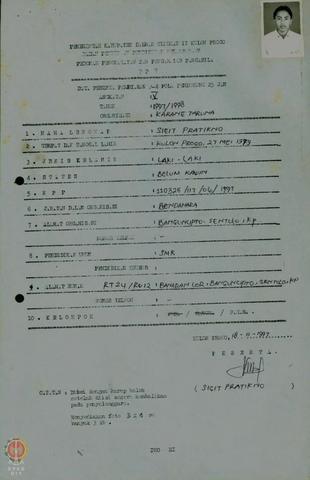 PEMERINTAH KABUPATEN DAERAH TINGKAT II KULON PROGO
PEDOMAN PENGHAYATAN DAN PENGAMALAN PANCASILA
( P 4 )
POLA PENDUKUNG 25 JAM
ANGKATAN : IV
TAHUN : 1997/1998
ORGANISASI : KARANG TARUNA
1. NAMA LENGKAP : SIGIT PRATIKNO
2. TEMPAT DAN TANGGAL LAHIR : KULON PROGO, 27 MEI 1979
3. JENIS KELAMIN : LAKI-LAKI
4. STATUS : BELUM KAWIN
5. KTP :
6. JABATAN DALAM ORGANISASI : BENDAHARA
7. ALAMAT ORGANISASI : BANGUNCIPTO, SENTOLO, KP
NOMOR TELPON : -
8. PENDIDIKAN UMUM : SMK
PENDIDIKAN KHUSUS : -
9. ALAMAT RUMAH RT 24/RW 12 : BANGUNCIPTO, SENTOLO, KP
NOMOR TELPON : -
10. KELOMPOK :
KULON PROGO, 18-11-1997.
P E S E R T A.
( SIGIT PRATIKNO )
CATATAN : Diisi dengan huruf balok
setelah diisi segera kembalikan
pada penyelenggara.
Menyerahkan foto 3 x 4 cm
banyak 3 lb.